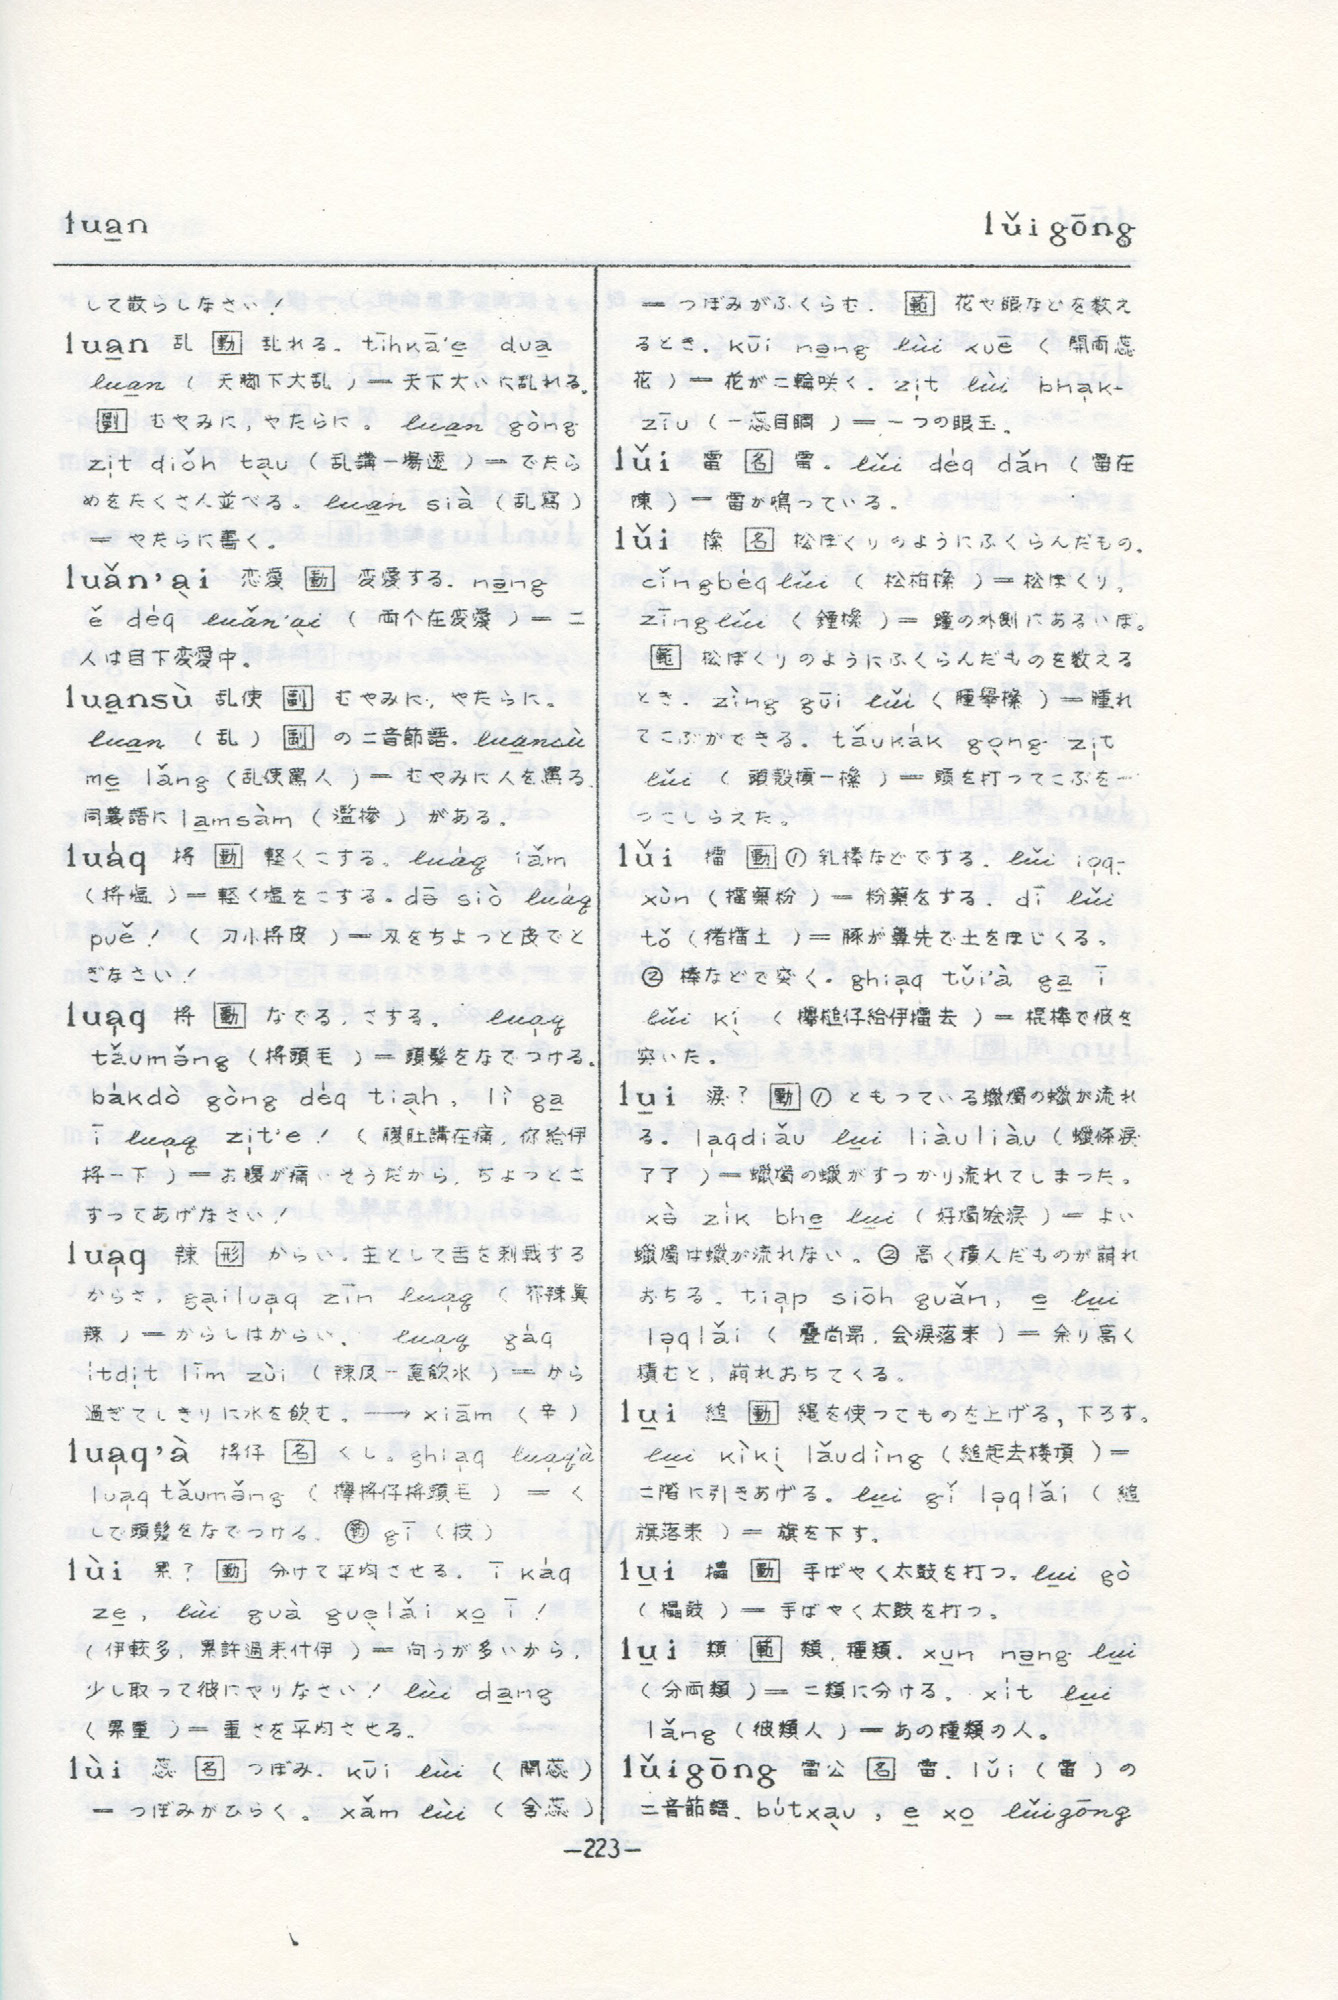 lua̱n
lǔigōng
して散らしなさい！
lua̱n 乱 動 乱れる. tīhkā'e̱ dua̱
lua̱n （天脚下大乱）＝天下大いに乱れる.
副 むやみに, やたらに。 lua̱n gòng
zi̍t diǒh ta̱u （乱講一場透）＝でたら
めをたくさん並べる。lua̱n sià （乱寫）
＝やたらに書く。
luǎn'a̱i 恋愛 動 恋愛する. na̱ng
ě déq luǎn'a̱i （両个在恋愛）＝二
人は目下恋愛中。
lua̱nsù 乱使 副 むやみに, やたらに。
luan （乱） 副 の二音節語. lua̱nsù
me̱ lǎng （乱使罵人）＝むやみに人を罵る.
同義語に la̱msàm （濫摻）がある。
luáq 捋 動 軽くこする。luáq iǎm
（捋塩）＝軽く塩をこする。dō siò luáq
puě！（刀小捋皮）＝刃をちょっと皮でと
ぎなさい！
lua̍q 捋 動 なでる, さする。 lua̍q
tǎumǒng （捋頭毛）＝頭髪をなでつける.
bákdò gòng déq tia̱h, lì ga̱
ī lua̍q zi̍t'e！（腹肚講在痛, 你給伊
捋一下）＝お腹が痛いそうだから, ちょっとさ
すってあげなさい！
lua̍q 辣 形 からい. 主として舌を刺戟する
からさ. ga̱ilua̍q zīn lua̍q （芥辣真
辣）＝からしはからい. lua̍q gáq
ítdi̍t līm zùi （辣及一直飲水）＝から
過ぎてしきりに水を飲む. → xiām （辛）
lua̍q'à 捋仔 名 くし。ghia̍q lua̍q'à
lua̍q tǎumǒng （攑捋仔捋頭毛）＝く
して頭髪をなでつける. gī （枝）
lùi 累？ 動 分けて平均させる. ī káq
ze̱, lùi guà gue̱lǎi xo̱ ī！
（伊較多, 累許過来付伊）＝向うが多いから,
少し取って彼にやりなさい！ lùi da̱ng
（累重）＝重さを平均させる.
lùi 蕊 名 つぼみ. kūi lùi （開蕊）
＝つぼみがひらく。xǎm lùi （含蕊）
＝つぼみがふくらむ. 範 花や眼などを数え
るとき. kūi na̱ng lùi xuē （開両蕊
花）＝花が二輪咲く. zi̍t lùi bha̍k-
zīu （一蕊目睭）＝一つの眼玉。
lǔi 雷 名 雷. lǔi déq dǎn （雷在
陳）＝雷が鳴っている.
lǔi 檑 名 松ぼくりのようにふくらんだもの.
cǐngbéqlǔi （松柏檑）＝松ぼくり.
zīnglǔi （鐘檑）＝鐘の外側にあるいぼ.
範 松ぼくりのようにふくらんだものを数える
とき. zìng gūi lǔi （腫擧檑）＝腫れ
てこぶができる. tǎukák go̱ng zi̍t
lǔi （頭殼摃一檑）＝頭を打ってこぶを一
つこしらえた。
lǔi 擂 動 ① 乳棒などでする. lǔi io̍q-
xùn （擂藥粉）＝粉薬をする. dī lǔi
tǒ （猪擂土）＝豚が鼻先で土をほじくる。
② 棒などで突く。ghia̍q tǔi'à ga̱ ī
lǔi kị （攑槌仔給伊擂去）＝棍棒で彼を
突いた。
lu̱i 淚？ 動 ① ともっている蠟燭の蠟が流れ
る. la̍qdiǎu lu̱i liàuliàu （蠟條淚
了了）＝蠟燭の蠟がすっかり流れてしまった。
xò zík bhe̱ lu̱i （好燭𣍐淚）＝よい
蠟燭は蠟が流れない。② 高く積んだものが崩れ
おちる. tia̍p siōh guǎn, e̱ lu̱i
lo̍qlǎi 疊尚昻, 会淚落来）＝余り高く
積むと, 崩れおちてくる。
lu̱i 縋 動 縄を使ってものを上げる, 下ろす.
lu̱i kìkị lǎudìng （縋起去楼頂）＝
二階に引きあげる。lu̱i gǐ lo̍qlǎi （縋
旗落来）＝旗を下す.
lu̱i 擂 動 手ばやく太鼓を打つ. lu̱i gò
（擂鼓）＝手ばやく太鼓を打つ。
lu̱i 類 範 類, 種類. xu̱n na̱ng lu̱i
（分両類）＝二類に分ける. xít lu̱i
lǎng （彼類人）＝あの種類の人。
lǔigōng 雷公 名 雷. lǔi （雷）の
二音節語. bútxa̱u, e̱ xo̱ lǔigōng
—223—